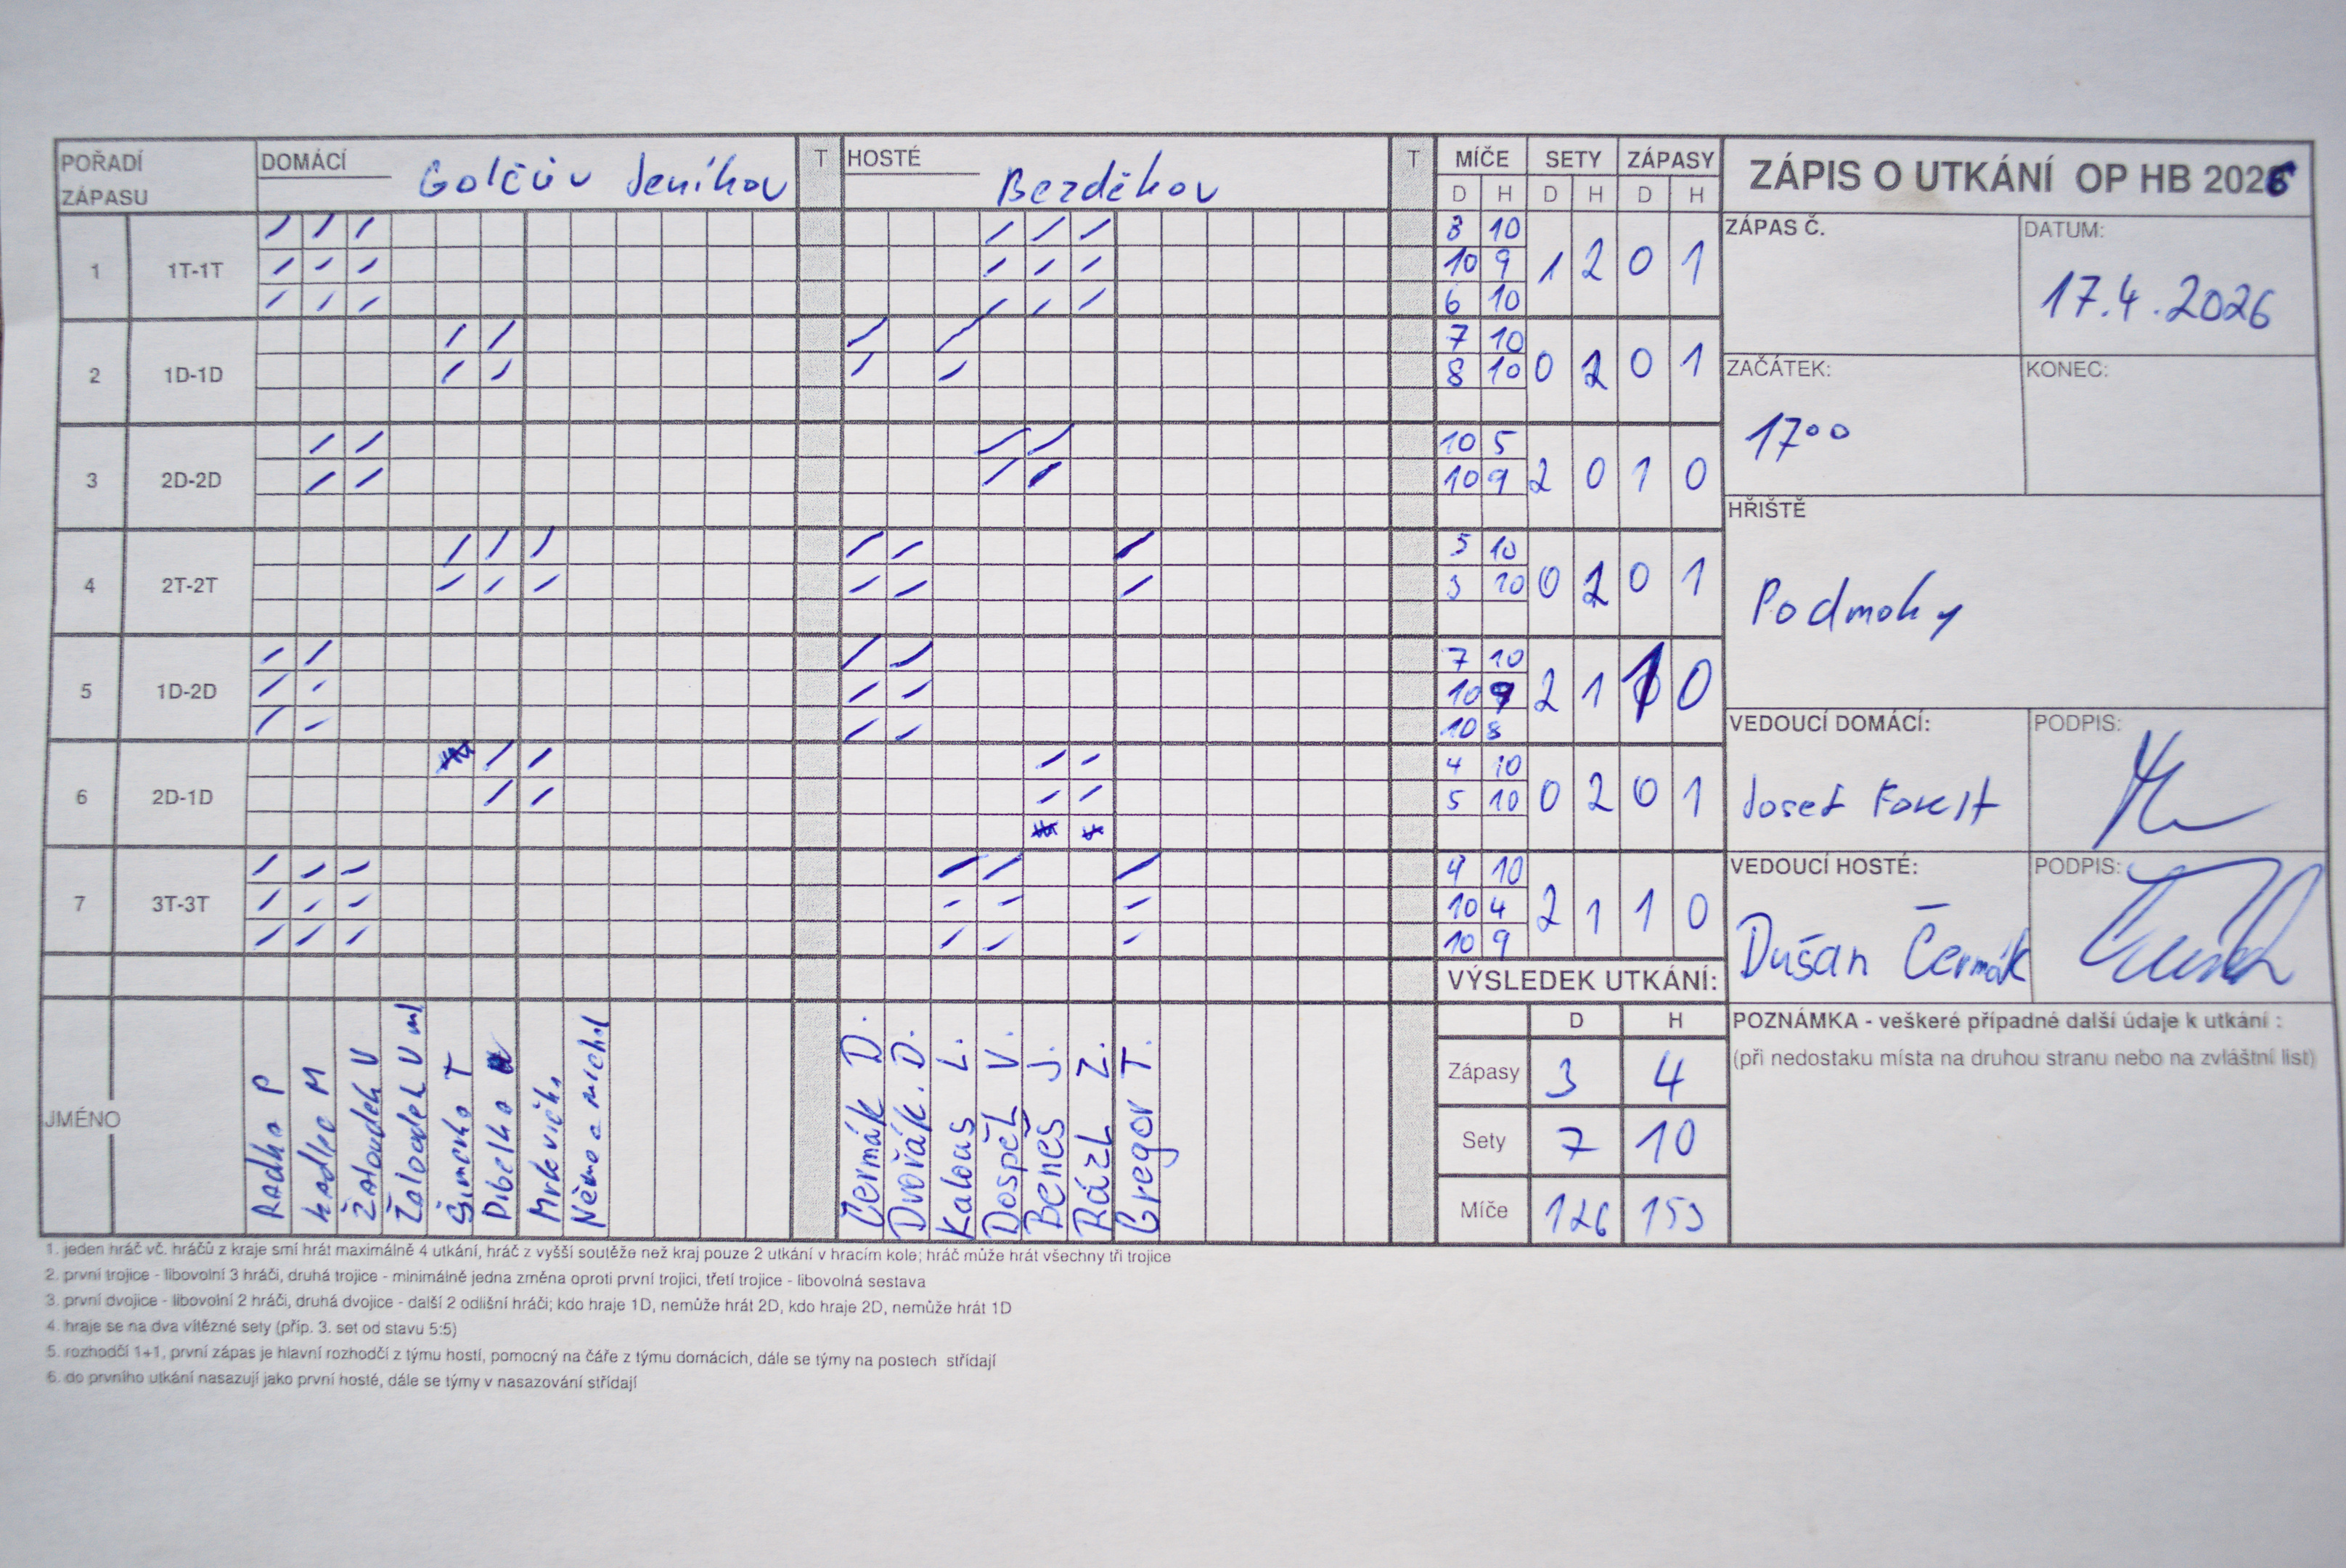 POŘADÍ ZÁPASU DOMÁCÍ Golčův Jeníkov T HOSTÉ Bezděkov T MÍČE SETY ZÁPASY
D H D H D H
1 1T-1T 8 10 1 2 0 1
10 9
6 10
2 1D-1D 7 10 0 2 0 1
8 10
3 2D-2D 10 5 2 0 1 0
10 9
4 2T-2T 5 10 0 2 0 1
3 10
5 1D-2D 7 10 2 1 1 0
10 9
10 8
6 2D-1D 4 10 0 2 0 1
5 10
7 3T-3T 4 10 2 1 1 0
10 4
10 9
JMÉNO
Radka P
Kadlec M
Žaloudek V
Žaloudek V ml
Šimerka T
Pibelka
Mrkvička
Němec Michal
Čermák D.
Dvořák. D.
Kalous L.
Dospěl V.
Beneš J.
Rázl Z.
Gregor T.
VÝSLEDEK UTKÁNÍ:
D H
Zápasy 3 4
Sety 7 10
Míče 126 153
ZÁPIS O UTKÁNÍ OP HB 2026
ZÁPAS Č.
DATUM:
17.4.2026
ZAČÁTEK:
17°°
KONEC:
HŘIŠTĚ
Podmoky
VEDOUCÍ DOMÁCÍ:
Josef Forst
PODPIS:
VEDOUCÍ HOSTÉ:
Dušan Čermák
PODPIS:
POZNÁMKA - veškeré případné další údaje k utkání :
(při nedostaku místa na druhou stranu nebo na zvláštní list)
1. jeden hráč vč. hráčů z kraje smí hrát maximálně 4 utkání, hráč z vyšší soutěže než kraj pouze 2 utkání v hracím kole; hráč může hrát všechny tři trojice
2. první trojice - libovolní 3 hráči, druhá trojice - minimálně jedna změna oproti první trojici, třetí trojice - libovolná sestava
3. první dvojice - libovolní 2 hráči, druhá dvojice - další 2 odlišní hráči; kdo hraje 1D, nemůže hrát 2D, kdo hraje 2D, nemůže hrát 1D
4. hraje se na dva vítězné sety (příp. 3. set od stavu 5:5)
5. rozhodčí 1+1, první zápas je hlavní rozhodčí z týmu hostí, pomocný na čáře z týmu domácích, dále se týmy na postech střídají
6. do prvního utkání nasazují jako první hosté, dále se týmy v nasazování střídají